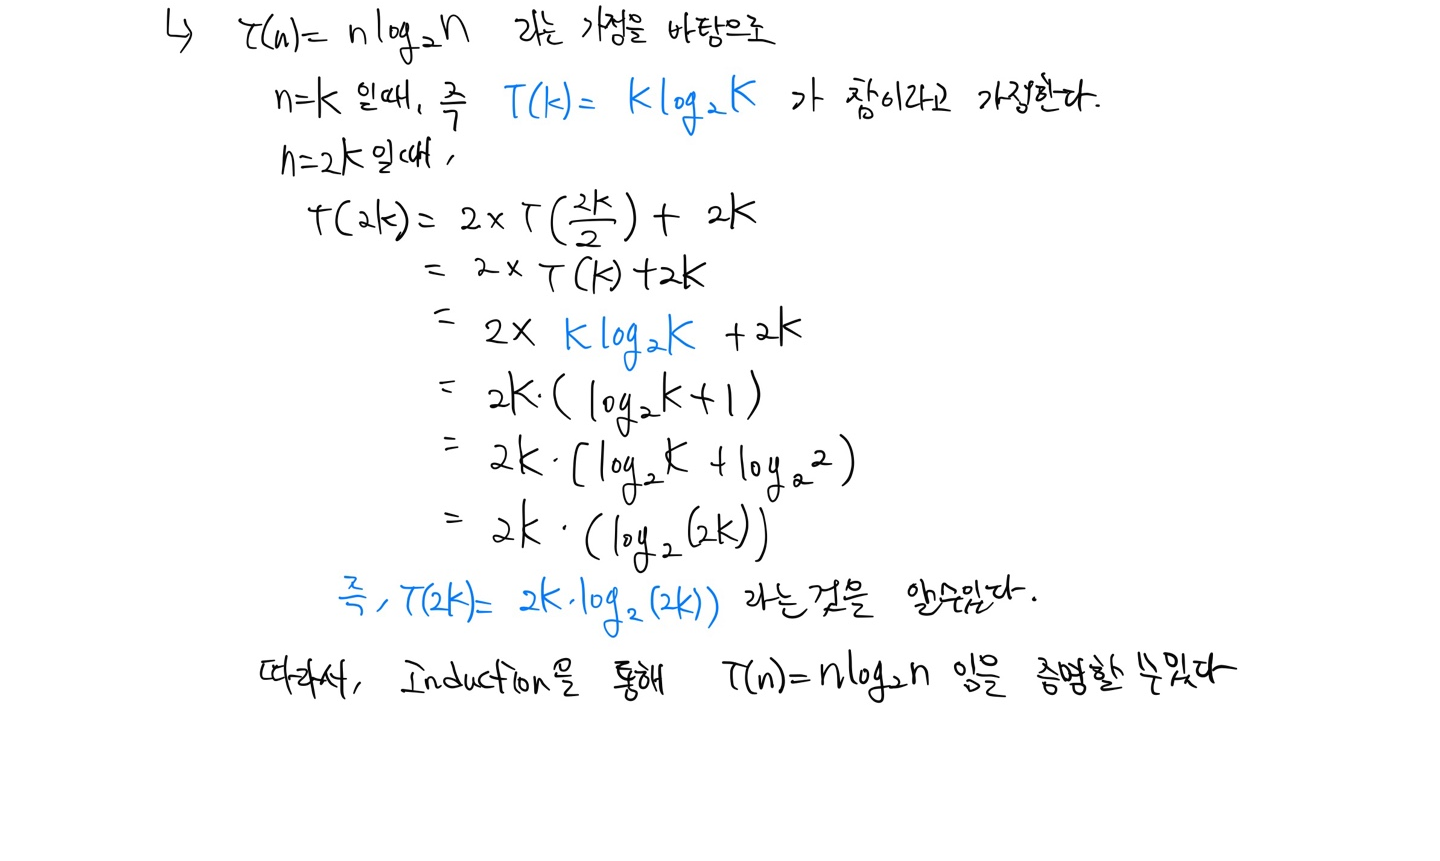 ↳ T(n) = nlog₂n 라는 가정을 바탕으로
n=k 일때, 즉 T(k) = klog₂k 가 참이라고 가정한다.
n=2k 일때,
T(2k) = 2 × T(2k/2) + 2k
= 2 × T(k) + 2k
= 2 × klog₂k + 2k
= 2k·(log₂k + 1)
= 2k·(log₂k + log₂2)
= 2k·(log₂(2k))
즉, T(2k) = 2k·log₂(2k)) 라는것을 알수있다.
따라서, Induction을 통해 T(n) = nlog₂n 임을 증명할 수 있다